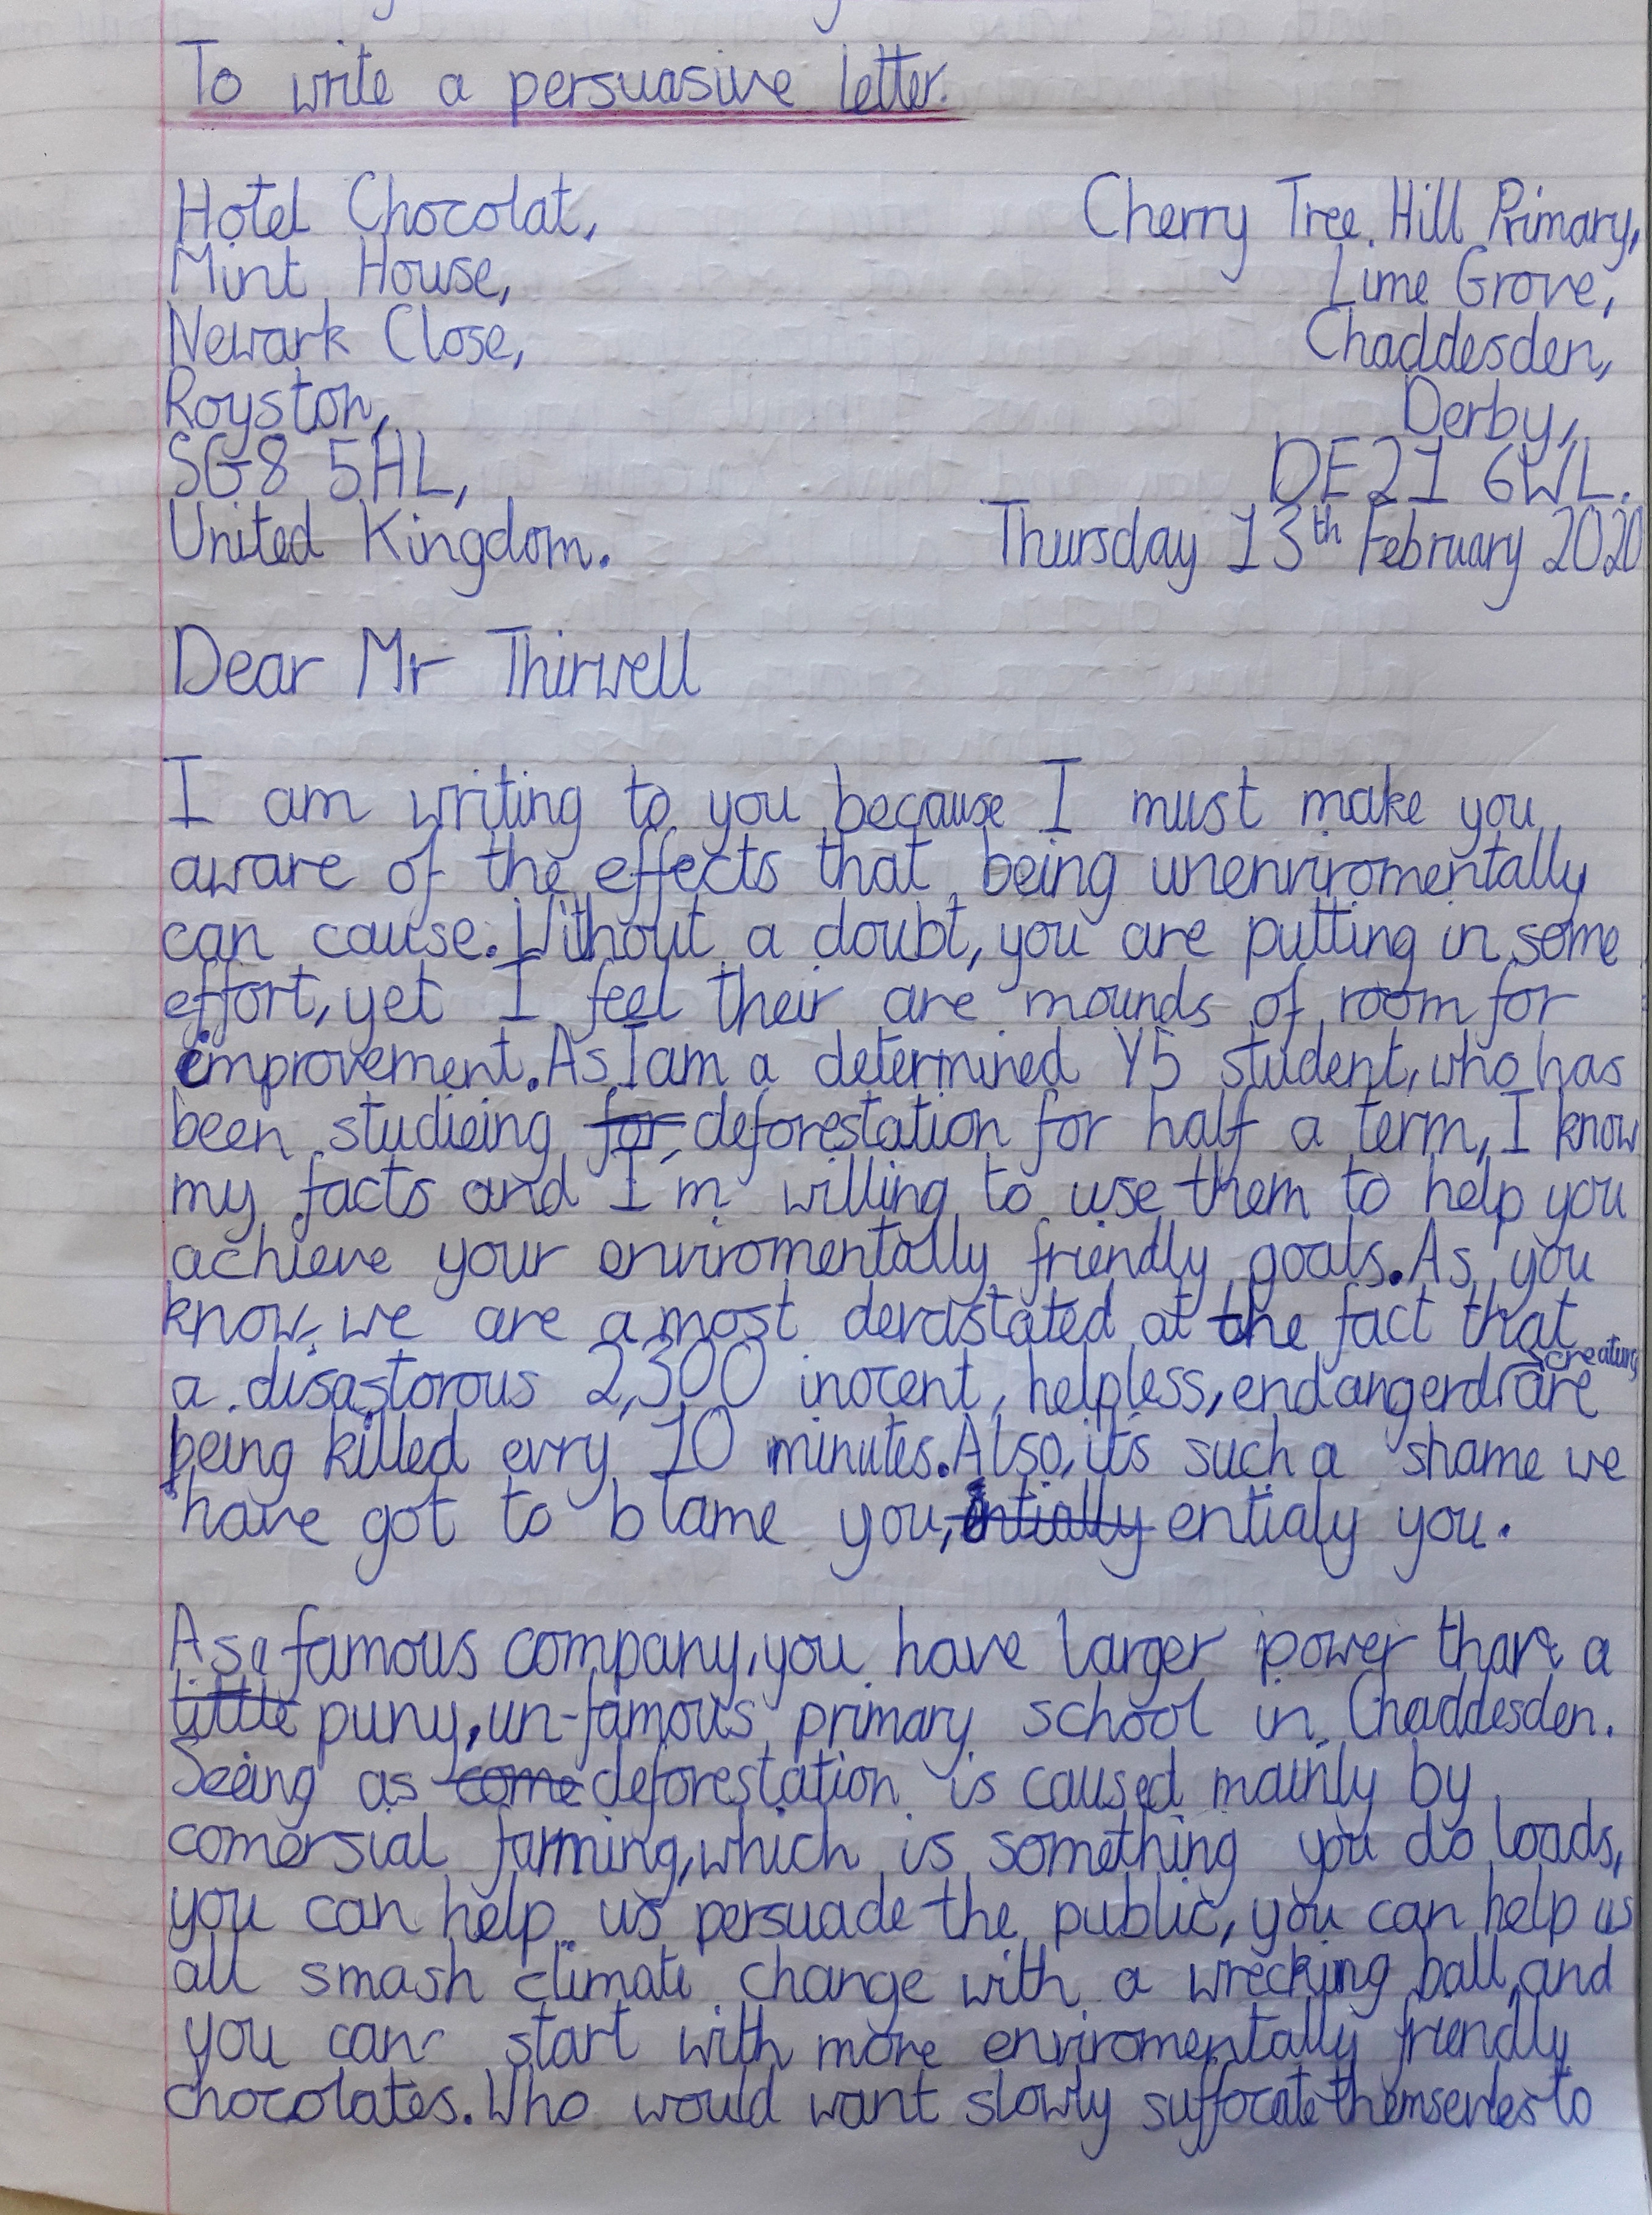 To write a persuasive letter.
Hotel Chocolat, Cherry Tree Hill Primary,
Mint House, Lime Grove,
Newark Close, Chaddesden,
Royston, Derby,
SG8 5HL, DE21 6WL.
United Kingdom. Thursday 13th February 2020
Dear Mr Thirwell
I am writing to you because I must make you
aware of the effects that being unenviromentally
can cause. Without a doubt, you are putting in some
effort, yet I feel their are mounds of room for
improvement. As I am a determined Y5 student, who has
been studieing for deforestation for half a term, I know
my facts and I'm willing to use them to help you
achieve your enviromentally friendly goals. As you
know, we are a most devastated at the fact that
a disastorous 2,300 inocent, helpless, endangerd creatures are
being killed evry 10 minutes. Also, it's such a shame we
have got to blame you, intially entialy you.
As a famous company, you have larger power than a
little puny, un-famous primary school in Chaddesden.
Seeing as come deforestation is caused mainly by
comersial farming, which is something you do loads,
you can help us persuade the public, you can help us
all smash climate change with a wrecking ball, and
you can start with more enviromentally friendly
chocolates. Who would want slowly suffocate themselves to